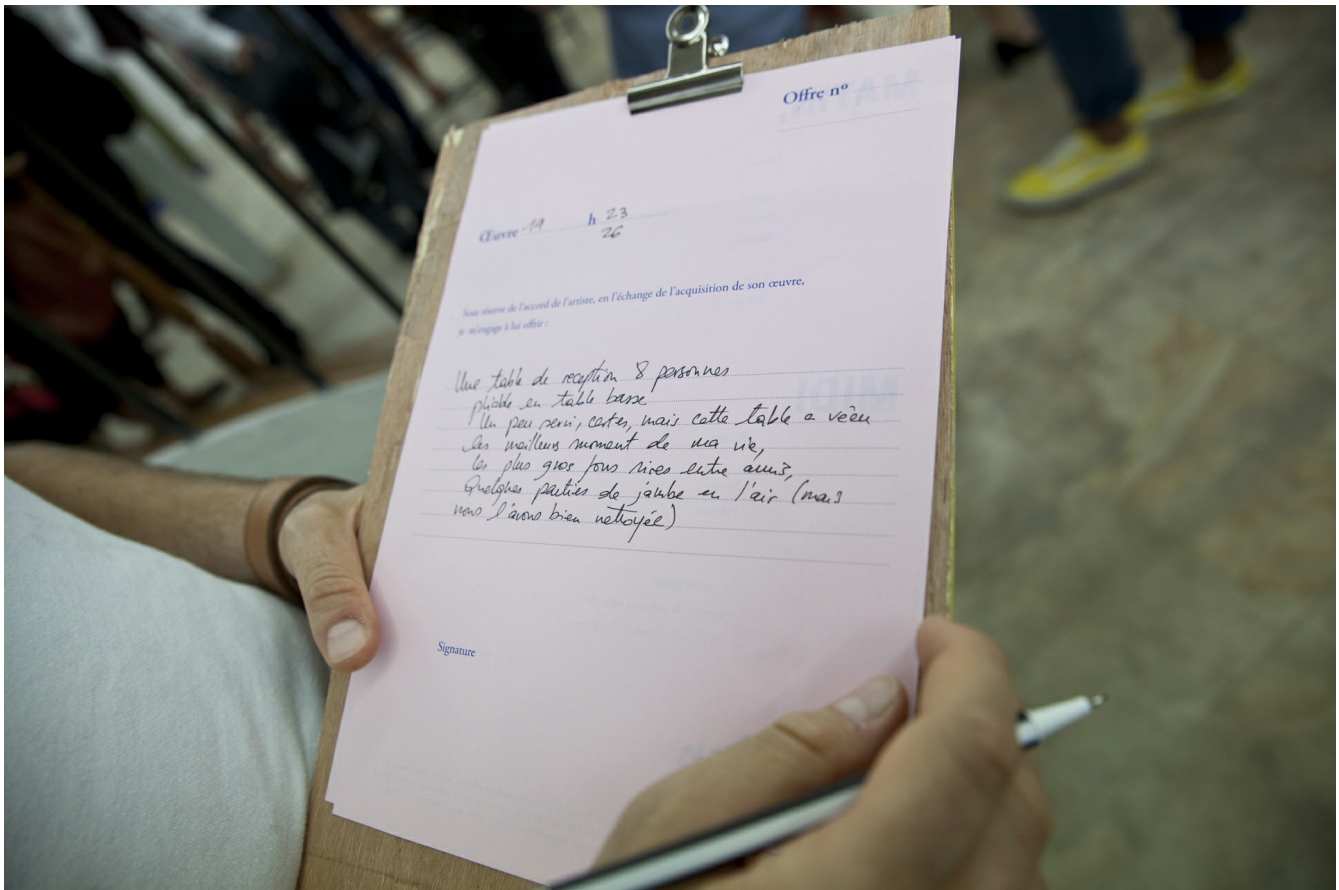 Offre nº
Œuvre 19 h 23
26
Sous réserve de l'accord de l'artiste, en l'échange de l'acquisition de son œuvre,
je m'engage à lui offrir :
Une table de reception 8 personnes
pliable en table basse
Un peu servi, certes, mais cette table a vécu
les meilleurs moment de ma vie,
les plus gros fous rires entre amis,
Quelques parties de jambe en l'air (mais
nous l'avons bien nettoyée)
Signature
MIDI